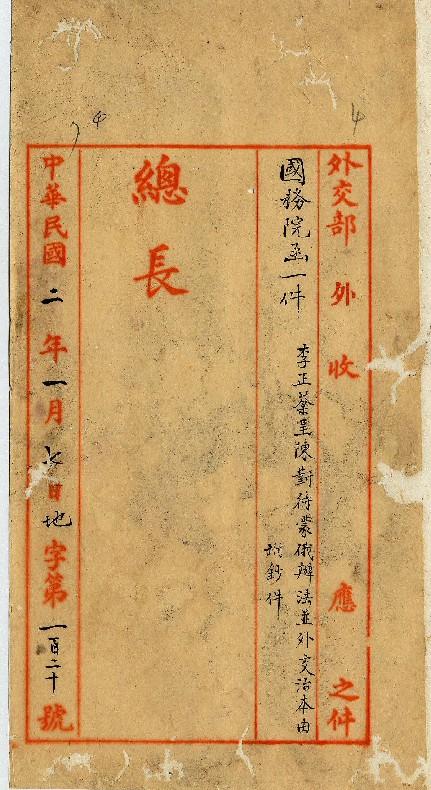 外交部外收應之件
國務院函一件
李正榮呈陳對待蒙俄辦法並外交治本由
鈔件
總長
中華民國二年一月七日地字第一百二十號
4
4